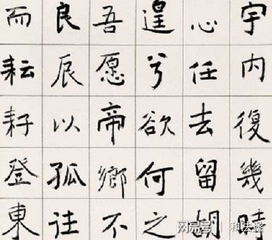 宇内復幾時
心任去留胡
遑兮欲何之
吾愿帝鄉不
良辰以孤往
而耘耔登東